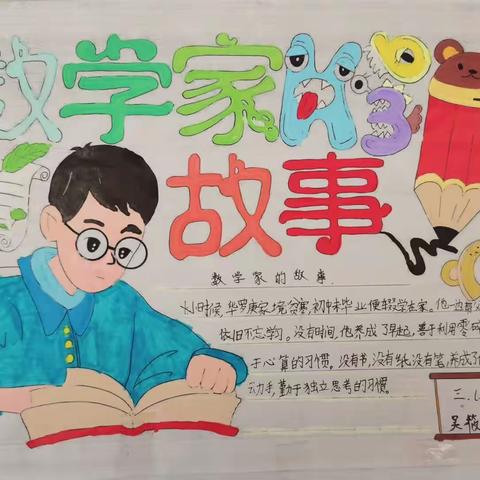 数学家
故事
数学家的故事
小时候,华罗庚家境贫寒,初中未毕业便辍学在家。他一边
依旧不忘学习。没有时间,他养成了早起,善于利用零
于心算的习惯。没有书,没有纸,没有笔,养成了
动手,勤于独立思考的习惯。
三.
吴